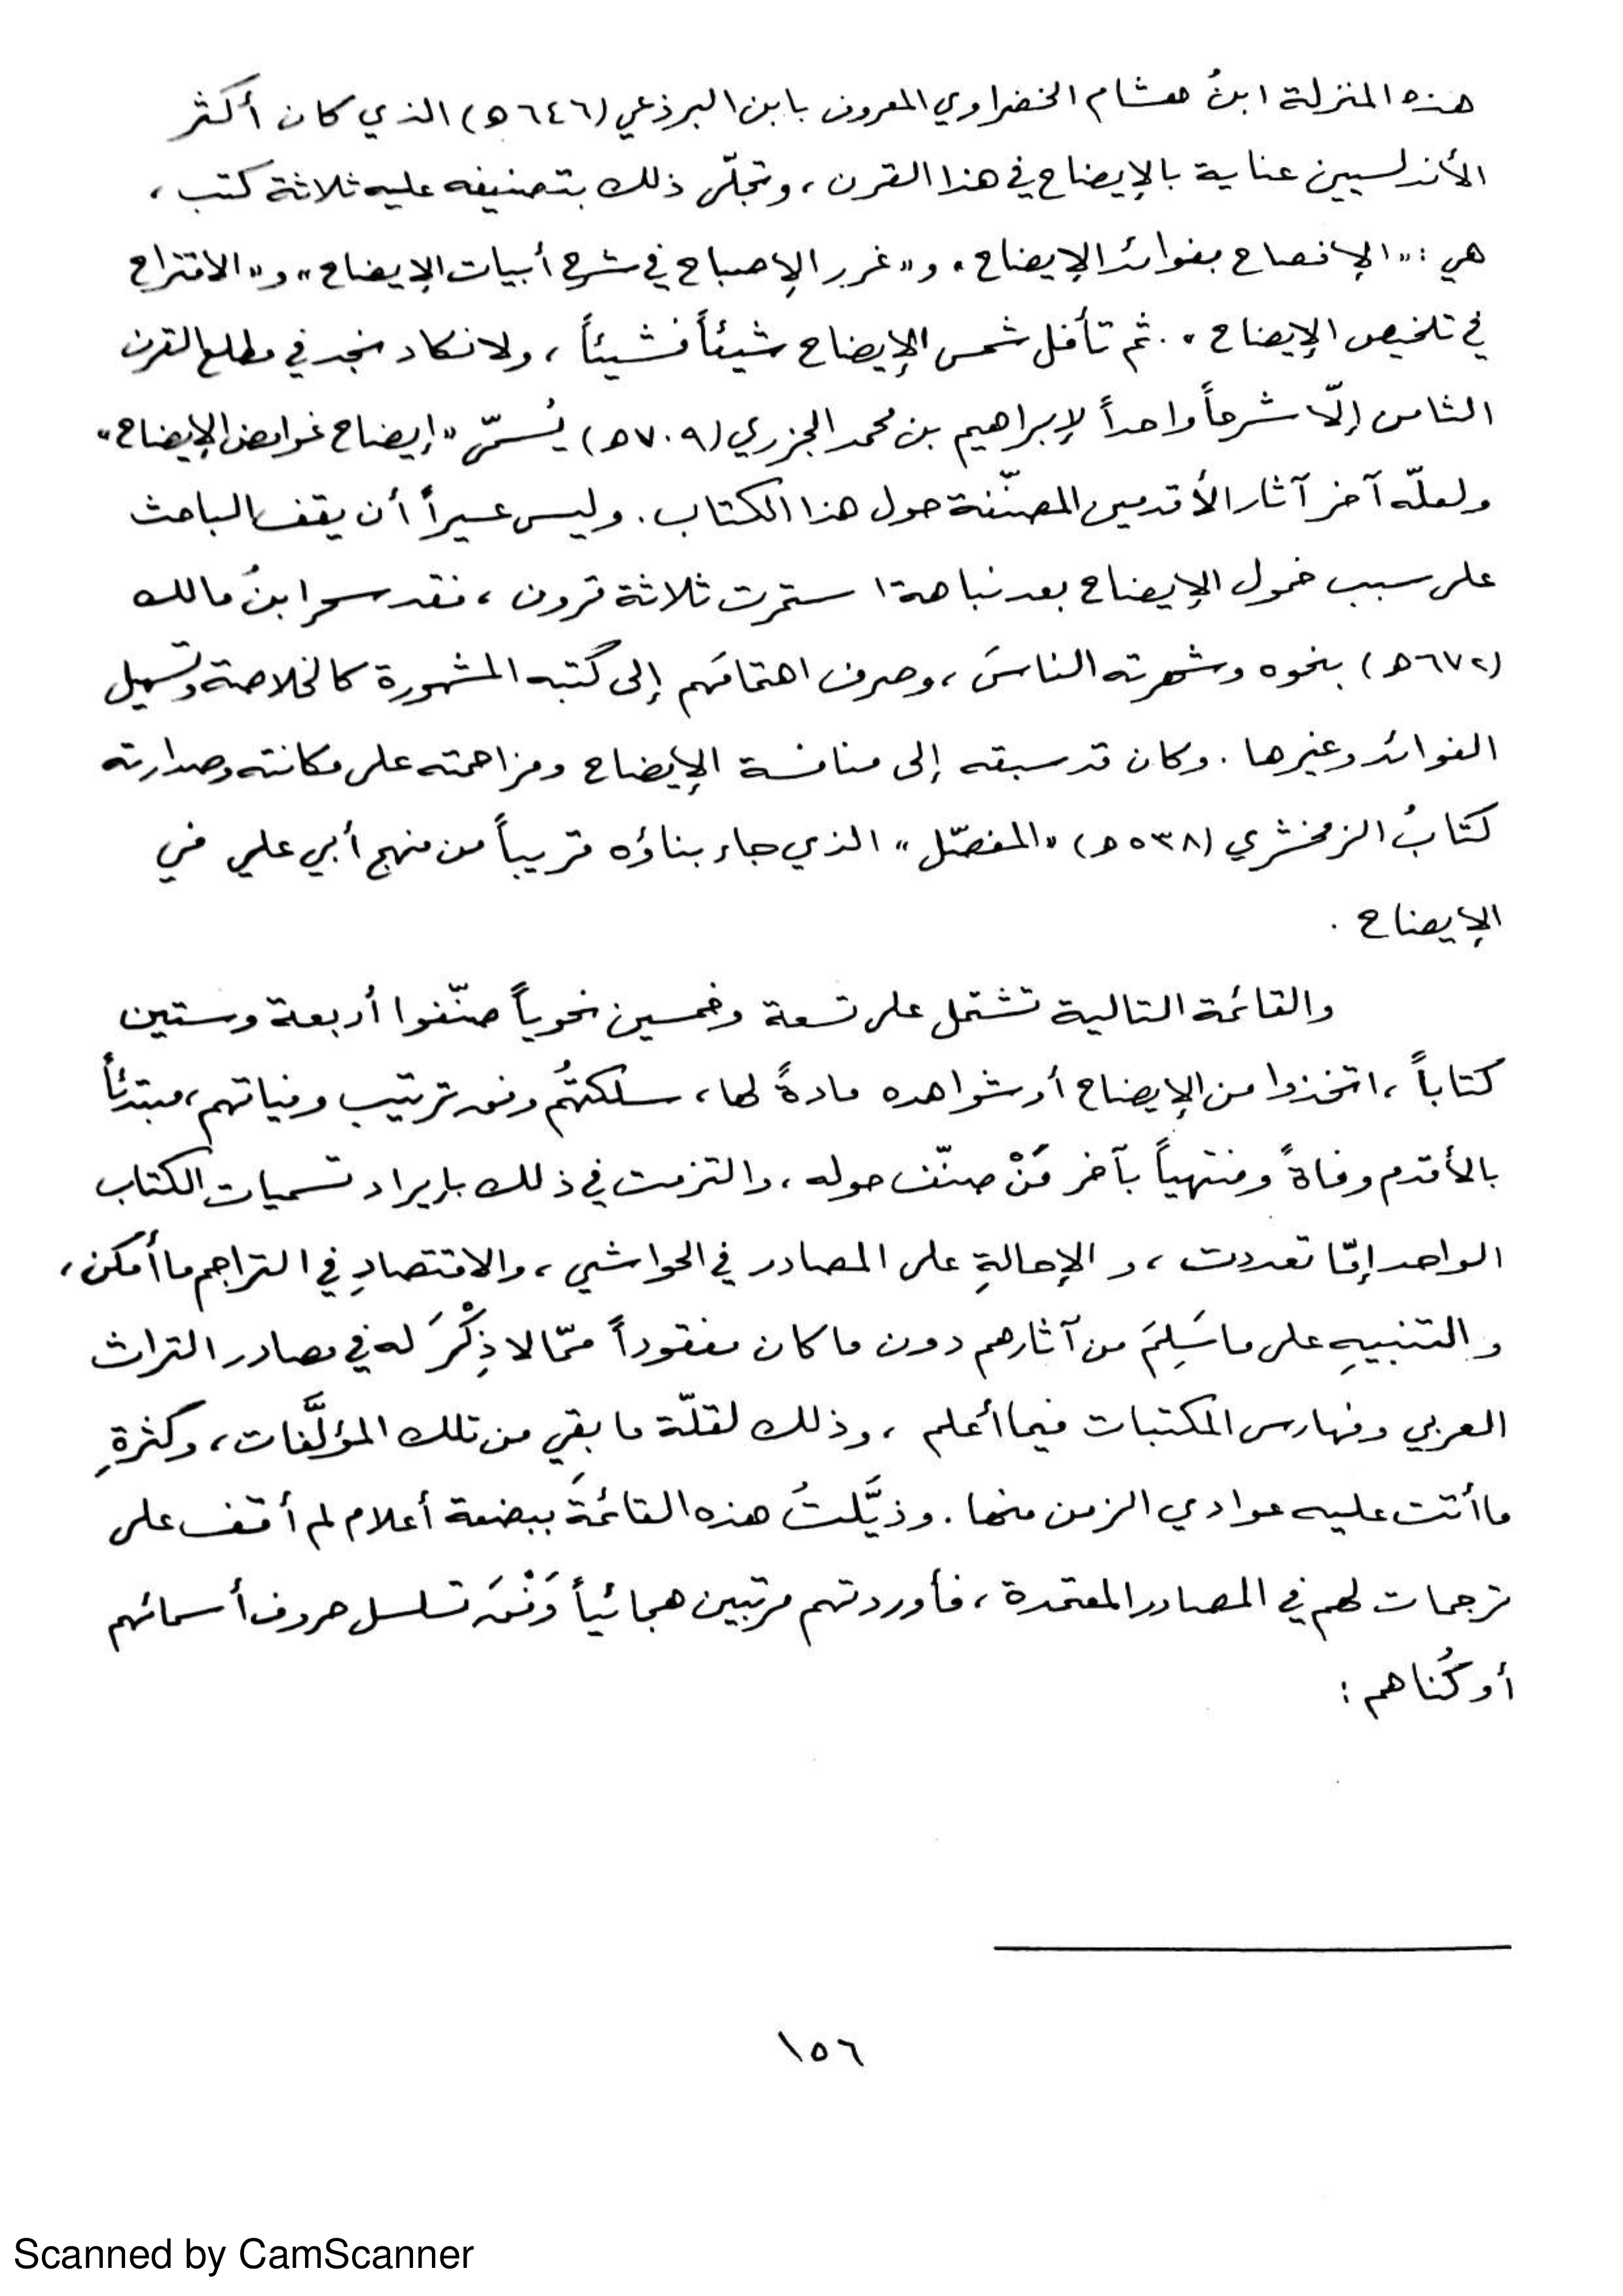 هذه المنزلة ابنُ هشام الخضراوي المعروف بابن البرذعي (٦٤٦ه) الذي كان أكثر
الأندلسيين عناية بالإيضاح في هذا القرن، وتجلّى ذلك بتصنيفه عليه ثلاثة كتب،
هي: «الإفصاح بفوائد الإيضاح» و«غرر الإصباح في شرح أبيات الإيضاح» و«الاقتراح
في تلخيص الإيضاح». ثم تأفل شمس الإيضاح شيئاً فشيئاً، ولا نكاد نجد في مطلع القرن
الثامن إلّا شرحاً واحداً لإبراهيم بن محمد الجزري (٧٠٩ه) يُسمّى «إيضاح غوامض الإيضاح»
ولعلّه آخر آثار الأقدمين المصنّفة حول هذا الكتاب. وليس عسيراً أن يقف الباحث
على سبب خمول الإيضاح بعد نباهة استمرت ثلاثة قرون، فقد سحر ابنُ مالك
(٦٧٢ه) بنحوه وشهرته الناسَ، وصرف اهتمامَهم إلى كتبه المشهورة كالخلاصة وتسهيل
الفوائد وغيرها. وكان قد سبقه إلى منافسة الإيضاح ومزاحمته على مكانته وصدارته
كتابُ الزمخشري (٥٣٨ه) «المفصّل» الذي جاء بناؤه قريباً من منهج أبي علي في
الإيضاح.
والقائمة التالية تشتمل على تسعة وخمسين نحوياً صنّفوا أربعة وستين
كتاباً، اتخذوا من الإيضاح أو شواهده مادةً لها، سلكتُهم وفق ترتيب وفياتهم، مبتدئاً
بالأقدم وفاةً ومنتهياً بآخر مَنْ صنّف حوله، والتزمت في ذلك بإيراد تسميات الكتاب
الواحد إمّا تعددت، والإحالةِ على المصادر في الحواشي، والاقتصادِ في التراجم ما أمكن،
والتنبيهِ على ما سَلِمَ من آثارهم دون ما كان مفقوداً ممّا لا ذِكْرَ له في مصادر التراث
العربي وفهارس المكتبات فيما أعلم، وذلك لقلّة ما بقي من تلك المؤلَّفات، وكثرةِ
ما أتت عليه عوادي الزمن منها. وذيَّلتُ هذه القائمةَ ببضعة أعلام لم أقف على
ترجمات لهم في المصادر المعتمدة، فأوردتهم مرتبين هجائياً وَفْقَ تسلسل حروف أسمائهم
أو كُناهم:
١٥٦
Scanned by CamScanner